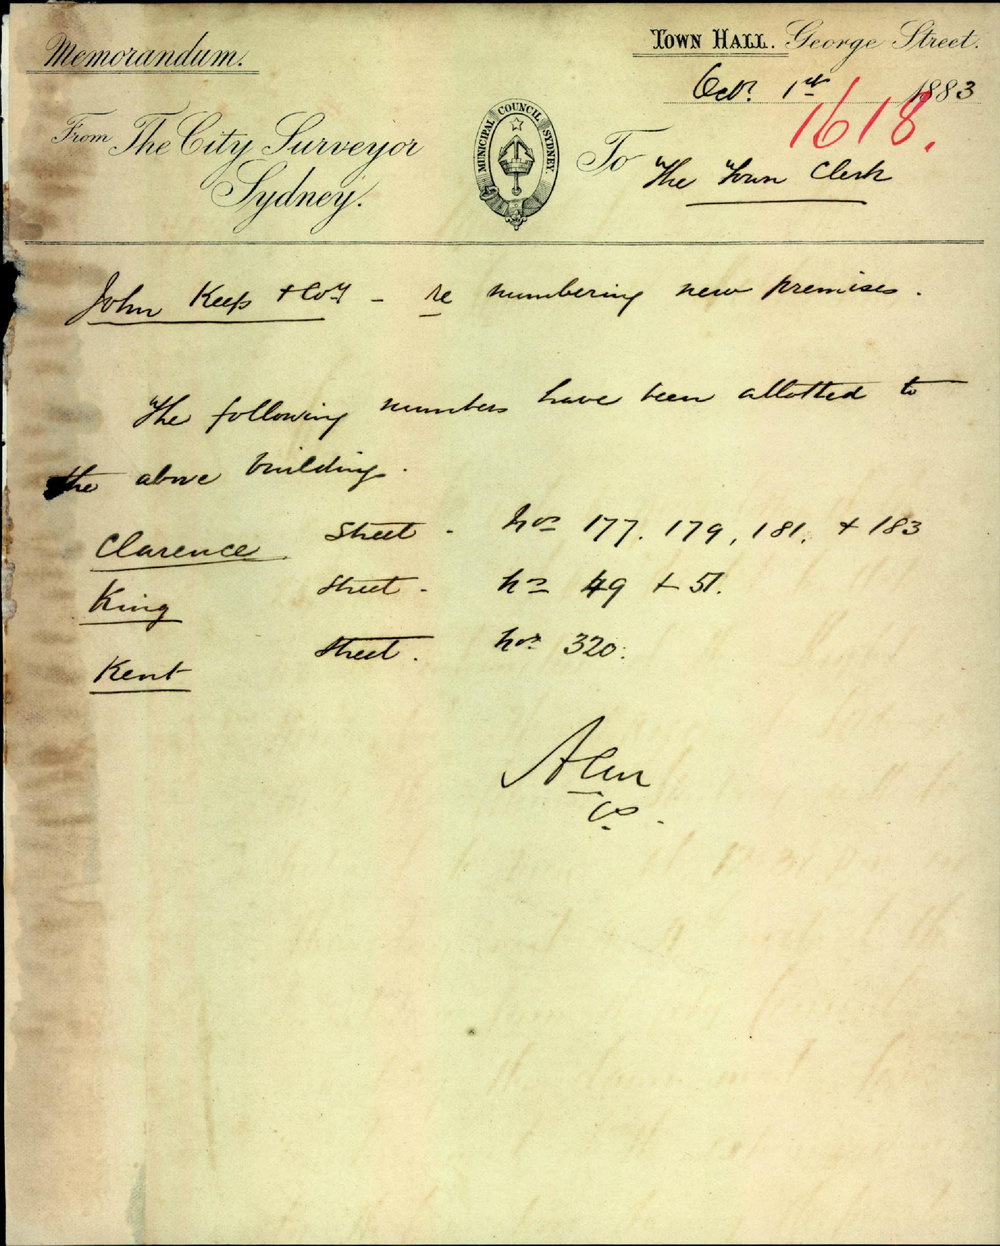 Memorandum.
TOWN HALL. George Street.
Octr. 1st 1883
1618.
From The City Surveyor
Sydney.
MUNICIPAL COUNCIL SYDNEY.
To The Town Clerk
John Keep & Coy - re numbering new premises.
The following numbers have been allotted to
the above building.
Clarence Street - Nos 177. 179, 181. & 183
King Street - Nos 49 & 51.
Kent Street. Nos 320.
CS.